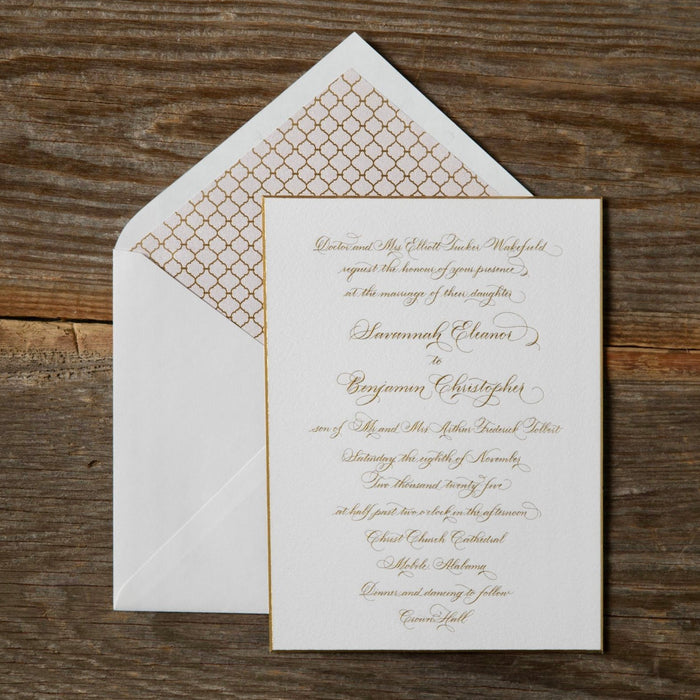 Doctor and Mrs Elliott Tucker Wakefield
request the honour of your presence
at the marriage of their daughter
Savannah Eleanor
to
Benjamin Christopher
son of Mr and Mrs Arthur Frederick Tolbert
Saturday the eighth of November
Two thousand twenty five
at half past two o'clock in the afternoon
Christ Church Cathedral
Mobile, Alabama
Dinner and dancing to follow
Crown Hall